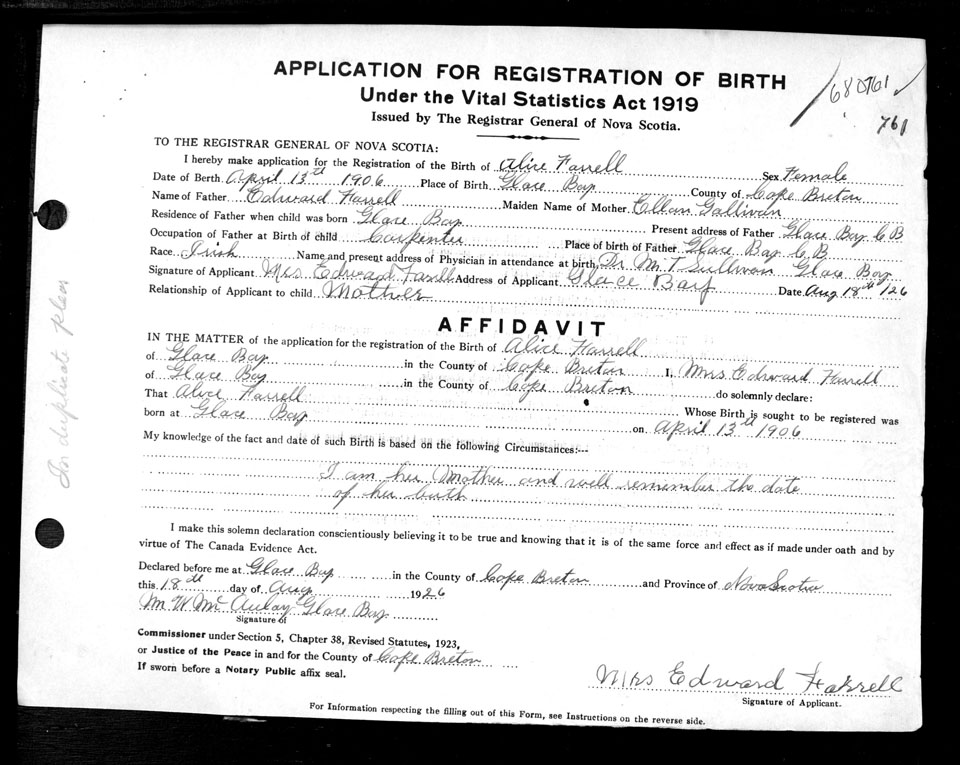 APPLICATION FOR REGISTRATION OF BIRTH
680761
Under the Vital Statistics Act 1919
761
Issued by The Registrar General of Nova Scotia.
TO THE REGISTRAR GENERAL OF NOVA SCOTIA:
I hereby make application for the Registration of the Birth of Alice Farrell Sex Female
Date of Birth April 13th 1906 Place of Birth Glace Bay County of Cape Breton
Name of Father Edward Farrell Maiden Name of Mother Ellen Gallivan
Residence of Father when child was born Glace Bay Present address of Father Glace Bay C B
Occupation of Father at Birth of child Carpenter Place of birth of Father Glace Bay C B
Race Irish Name and present address of Physician in attendance at birth Dr M T Sullivan Glace Bay
Signature of Applicant Mrs Edward Farrell Address of Applicant Glace Bay Date Aug 18th/26
Relationship of Applicant to child Mother
AFFIDAVIT
IN THE MATTER of the application for the registration of the Birth of Alice Farrell
of Glace Bay in the County of Cape Breton I, Mrs Edward Farrell
of Glace Bay in the County of Cape Breton do solemnly declare:
That Alice Farrell Whose Birth is sought to be registered was
born at Glace Bay on April 13th 1906
My knowledge of the fact and date of such Birth is based on the following Circumstances:---
I am her Mother and well remember the date
of her birth
I make this solemn declaration conscientiously believing it to be true and knowing that it is of the same force and effect as if made under oath and by
virtue of The Canada Evidence Act.
Declared before me at Glace Bay in the County of Cape Breton and Province of Nova Scotia
this 18th day of Aug 1926
M W McAulay Glace Bay
Signature of
Commissioner under Section 5, Chapter 38, Revised Statutes, 1923,
or Justice of the Peace in and for the County of Cape Breton
If sworn before a Notary Public affix seal.
Mrs Edward Farrell
Signature of Applicant.
For Information respecting the filling out of this Form, see Instructions on the reverse side.
In duplicate please